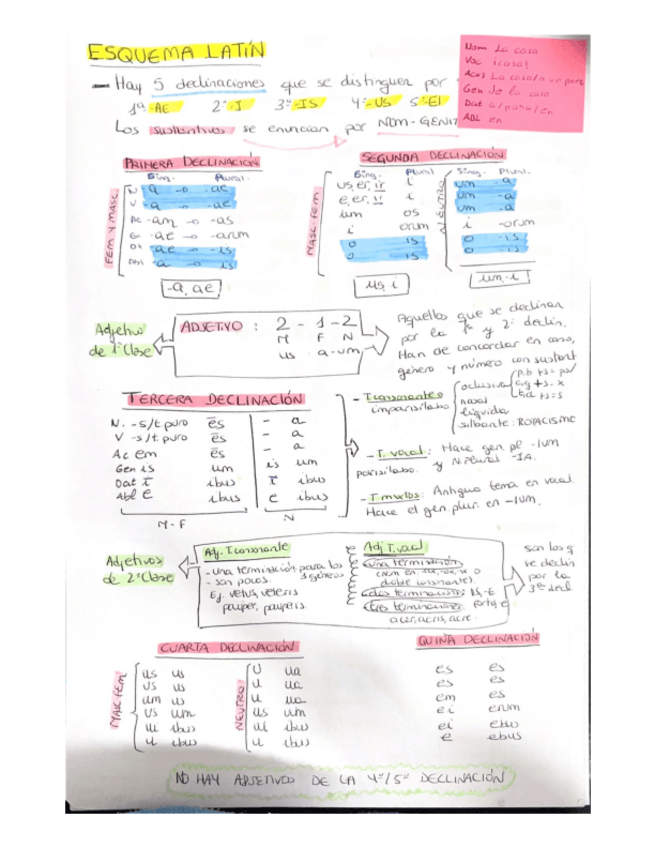 ESQUEMA LATÍN
Nom La casa
Voc ¡casa!
Acus La casa/a
Gen De la casa
Dat a/para/
ABL en
- Hay 5 declinaciones que se distinguen por
1ª-AE 2ª-I 3ª-IS 4ª-US 5ª-EI
Los sustantivos se enuncian por NOM-GENIT
PRIMERA DECLINACIÓN
Sing. Plural
FEM Y MASC.
N -a -o -ae
V -a -o -ae
Ac -am -o -as
Gn -ae -o -arum
Dt -ae -o -is
Abl -a -o -is
-a, ae
SEGUNDA DECLINACIÓN
MASC-FEM
Sing. Plural
us, er, ir i
e, er, ir i
um os
i orum
o is
o is
us, i
NEUTRO
Sing. Plural
um -a
um -a
um -a
i -orum
o -is
o -is
um-i
Adjetivo
de 1ªClase
ADJETIVO : 2 - 1 - 2
M F N
us - a-um
Aquellos que se declinan
por la 1ª y 2ª declin.
Han de concordar en caso,
género y número con sustant
TERCERA DECLINACIÓN
N. -s/t.puro ēs - a
V -s/t.puro ēs - a
Ac em ēs - a
Gen is um is um
Dat ī ibus ī ibus
Abl e ibus e ibus
M-F
N
- T.consonante
imparisílabo
oclusiva
p.b +s=
c.g +s=x
t.d +s=s
nasal
líquida
silbante: ROTACISMO
- T. vocal: Hace gen. pl -ium
parisílabo. y N.Plural -IA.
- T mixtos: Antiguo tema en vocal
Hace el gen. plur. en -ium.
Adjetivos
de 2ªClase
Adj. T.consonante
- una terminación para los
3 géneros
- son pocos.
Ej. vetus, veteris
pauper, pauperis.
Adj T.vocal
una terminación
doble consonante).
dos terminaciones: is,-e
tres terminaciones:
acer, acris, acre.
son los q
se declin
por la
3ª decl
CUARTA DECLINACIÓN
MASC-FEM
us us
us us
um us
us um
ui ibus
u ibus
NEUTRO
u ua
u ua
u ua
us um
ui ibus
u ibus
QUINA DECLINACIÓN
es es
es es
em es
ei erum
ei ebus
e ebus
NO HAY ADJETIVOS DE LA 4ª/5ª DECLINACIÓN